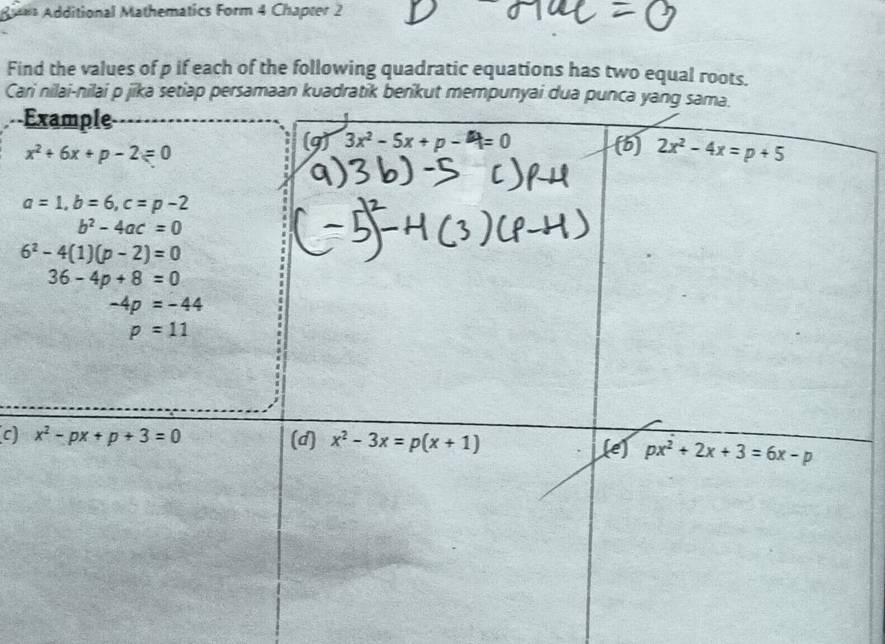 Additional Mathematics Form 4 Chapter 2
D = 0
Find the values of p if each of the following quadratic equations has two equal roots.
Cari nilai-nilai p jika setiap persamaan kuadratik berikut mempunyai dua punca yang sama.
Example
x² + 6x + p - 2 = 0
a = 1, b = 6, c = p - 2
b² - 4ac = 0
6² - 4(1)(p - 2) = 0
36 - 4p + 8 = 0
-4p = -44
p = 11
(a) 3x² - 5x + p - 4 = 0
a) 3 b) -5 c) p-4
(-5)² - 4(3)(p-4)
(b) 2x² - 4x = p + 5
(c) x² - px + p + 3 = 0
(d) x² - 3x = p(x + 1)
(e) px² + 2x + 3 = 6x - p